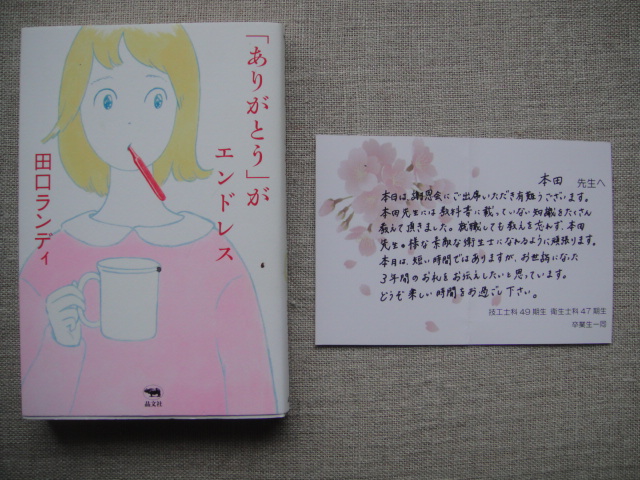 「ありがとう」が
エンドレス
田口ランディ
晶文社
本田 先生へ
本日は、謝恩会にご出席いただき有難うございます。
本田先生には教科書に載っていない知識をたくさん
教えて頂きました。就職しても教えを忘れず、本田
先生の様な素敵な衛生士になれるように頑張ります。
本日は、短い時間ではありますが、お世話になった
3年間のお礼をお伝えしたいと思っています。
どうぞ楽しい時間をお過ごし下さい。
技工士科49期生 衛生士科47期生
卒業生一同